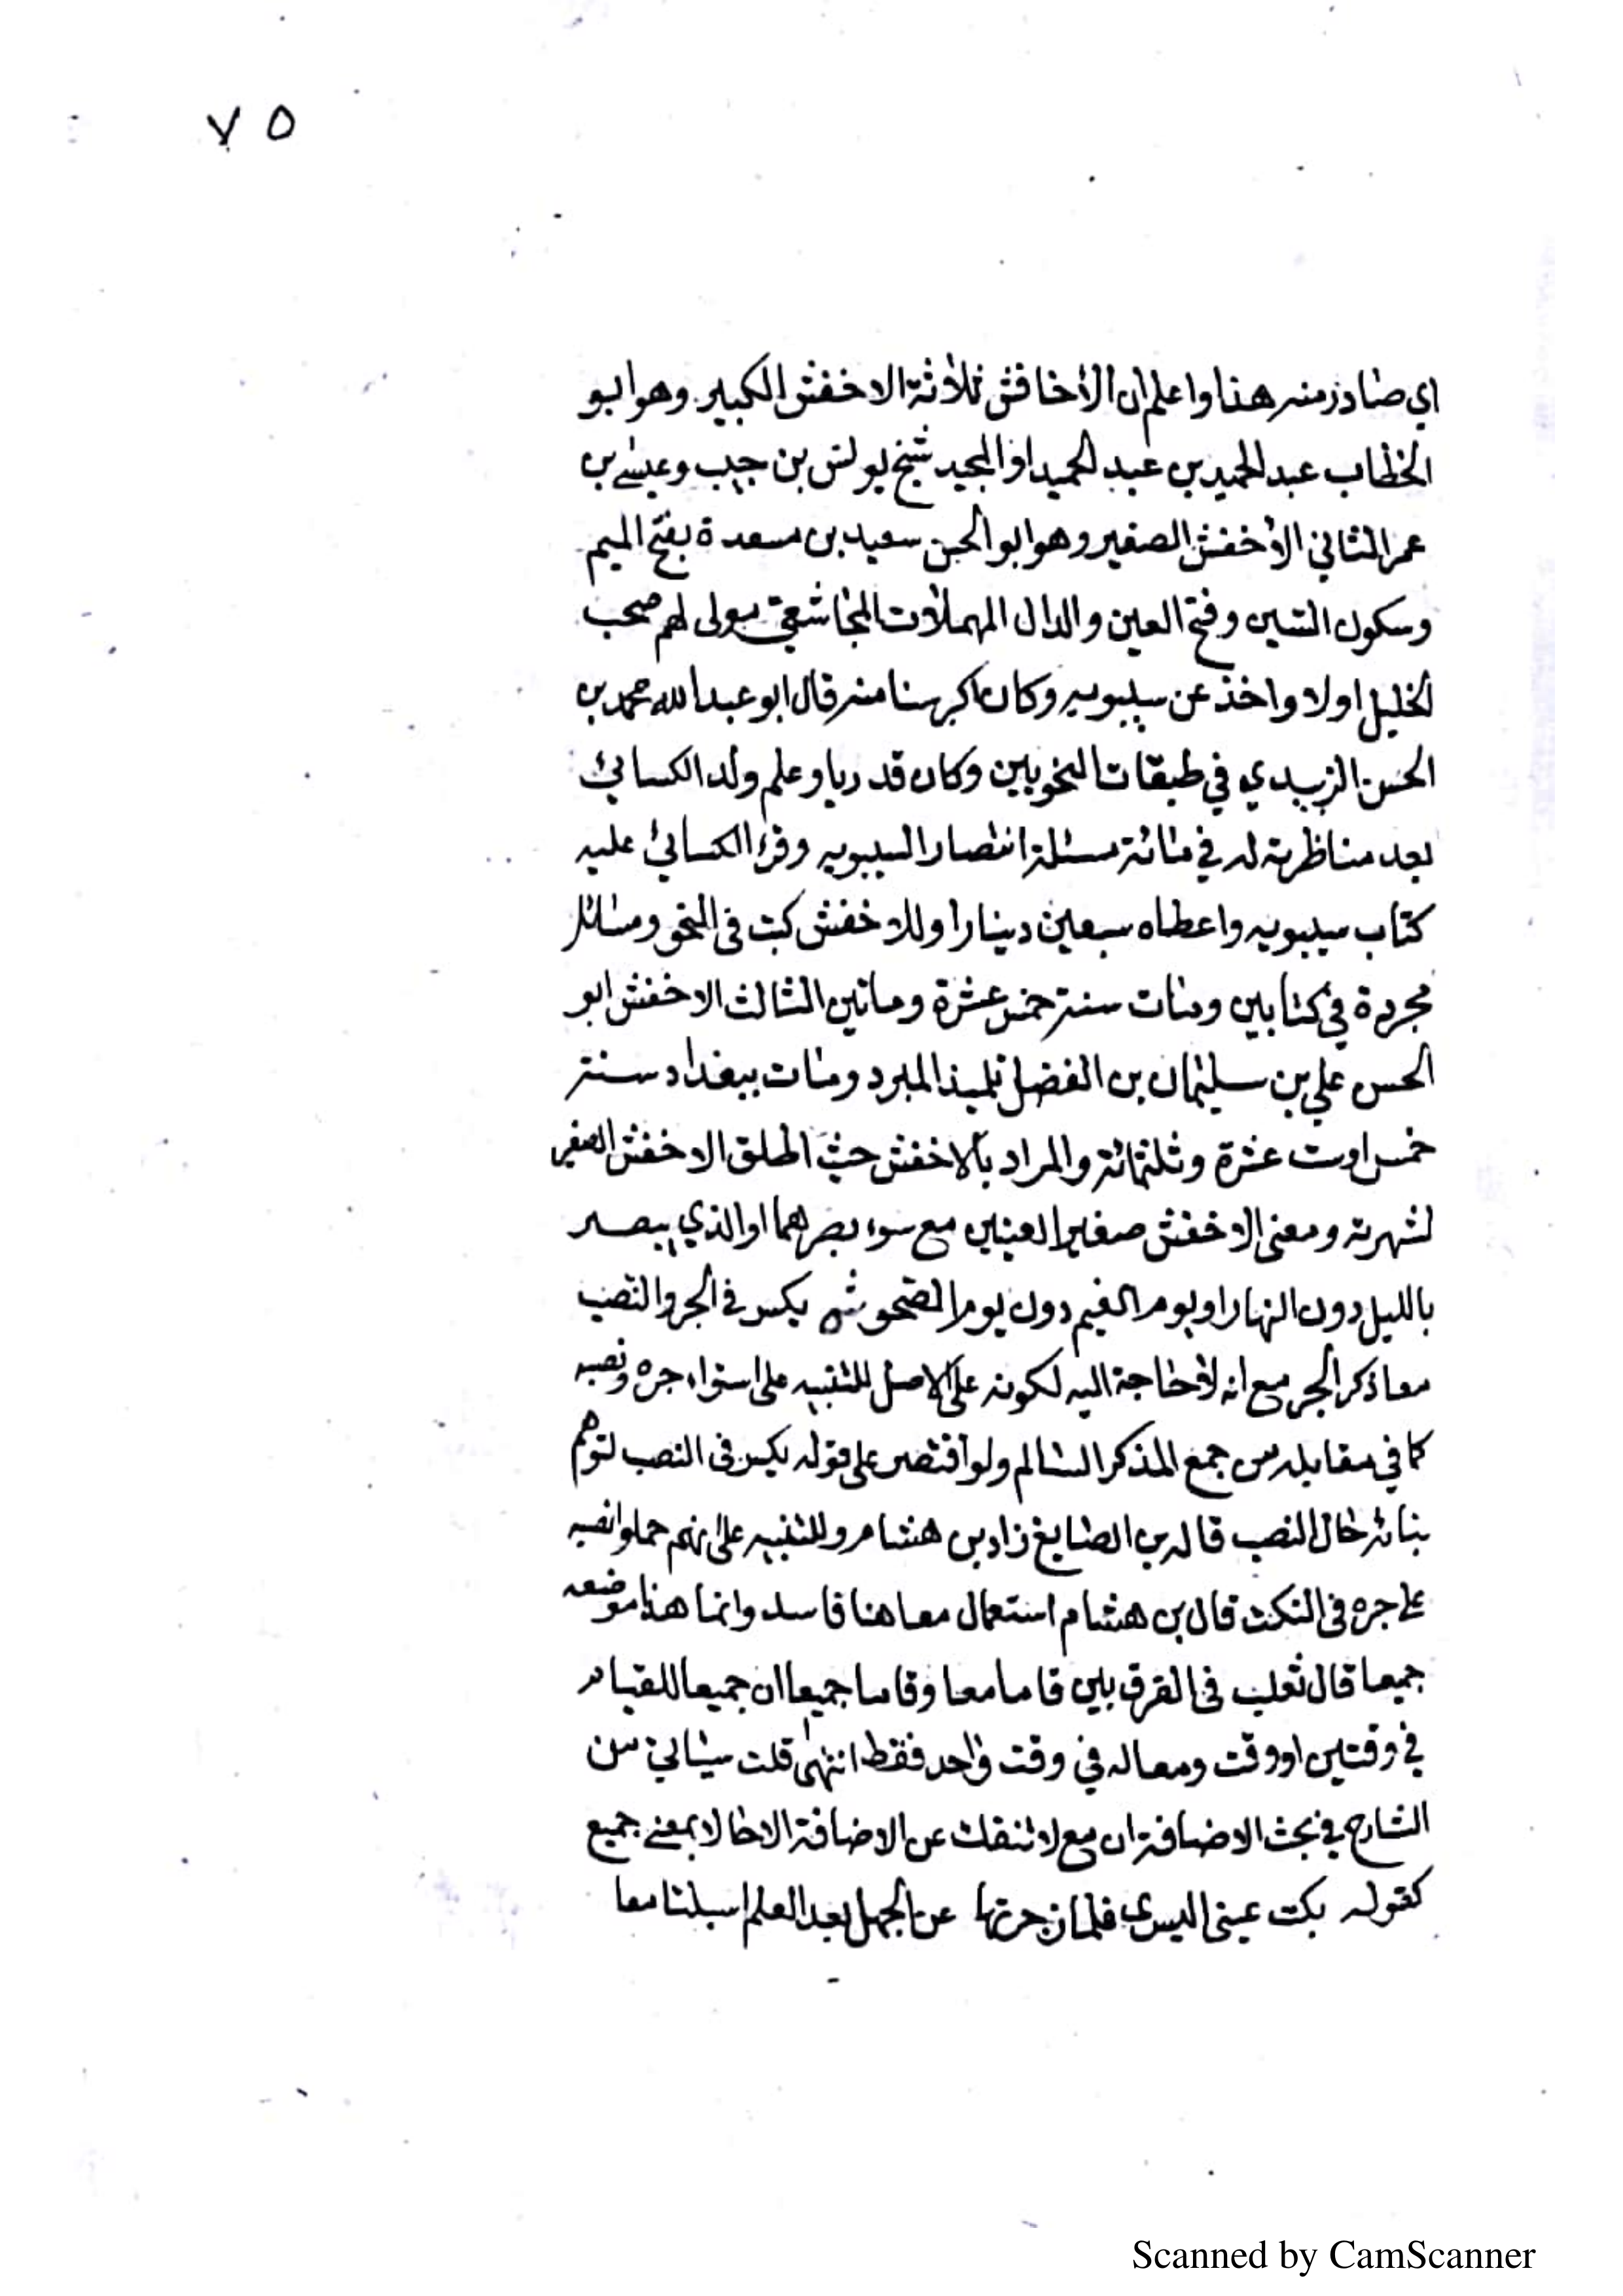 ٧٥
اي صادر منه هنا واعلم ان الأخافش ثلاثة الاخفش الكبير وهو ابو
الخطاب عبد الحميد بن عبد الحميد او المجيد شيخ يونس بن حبيب وعيسى بن
عمر الثاني الأخفش الصغير وهو ابو الحسن سعيد بن مسعدة بفتح الميم
وسكون السين وفتح العين والدال المهملات المجاشعي مولى لهم صحب
الخليل اولا واخذ عن سيبويه وكان اكبر سنا منه قال ابو عبد الله محمد بن
الحسن الزبيدي في طبقات النحويين وكان قدريا وعلم ولد الكسائي
بعد مناظرته له في مائة مسئلة انتصارا لسيبويه وقرء الكسائي عليه
كتاب سيبويه واعطاه سبعين دينارا وللاخفش كتب في النحو ومسائل
مجردة في كتابين ومات سنة خمس عشرة وماتين الثالث الاخفش ابو
الحسن علي بن سليمان بن الفضل تلميذ المبرد ومات ببغداد سنة
خمس اوست عشرة وثلثمائة والمراد بالاخفش حيث اطلق الاخفش الصغير
لشهرته ومعنى الاخفش صغير العينين مع سوء بصرهما او الذي يبصر
بالليل دون النهار او يوم الغيم دون يوم الصحو ش يكسر في الجر والنصب
معا ذكر الجر مع انه لا حاجة اليه لكونه على الاصل للتنبيه على استواء جره ونصبه
كما في مقابله من جمع المذكر السالم ولو اقتصر على قوله يكسر في النصب لتوهم
بنائه حال النصب قاله بن الصايغ زاد بن هشام وللتنبيه على انهم حملوا نصبه
على جره في النكت قال بن هشام استعمال معا هنا فاسد وانما هذا موضعه
جميعا قال ثعلب في الفرق بين قاما معا وقاما جميعا ان جميعا للقيام
في وقتين او وقت ومعا له في وقت واحد فقط انتهى قلت سياتي من
الشارح في بحث الاضافة ان مع لا تنفك عن الاضافة الا حالا بمعنى جميع
كقوله بكت عيني اليسرى فلما زجرتها عن الجهل بعد العلم اسبلتا معا
Scanned by CamScanner